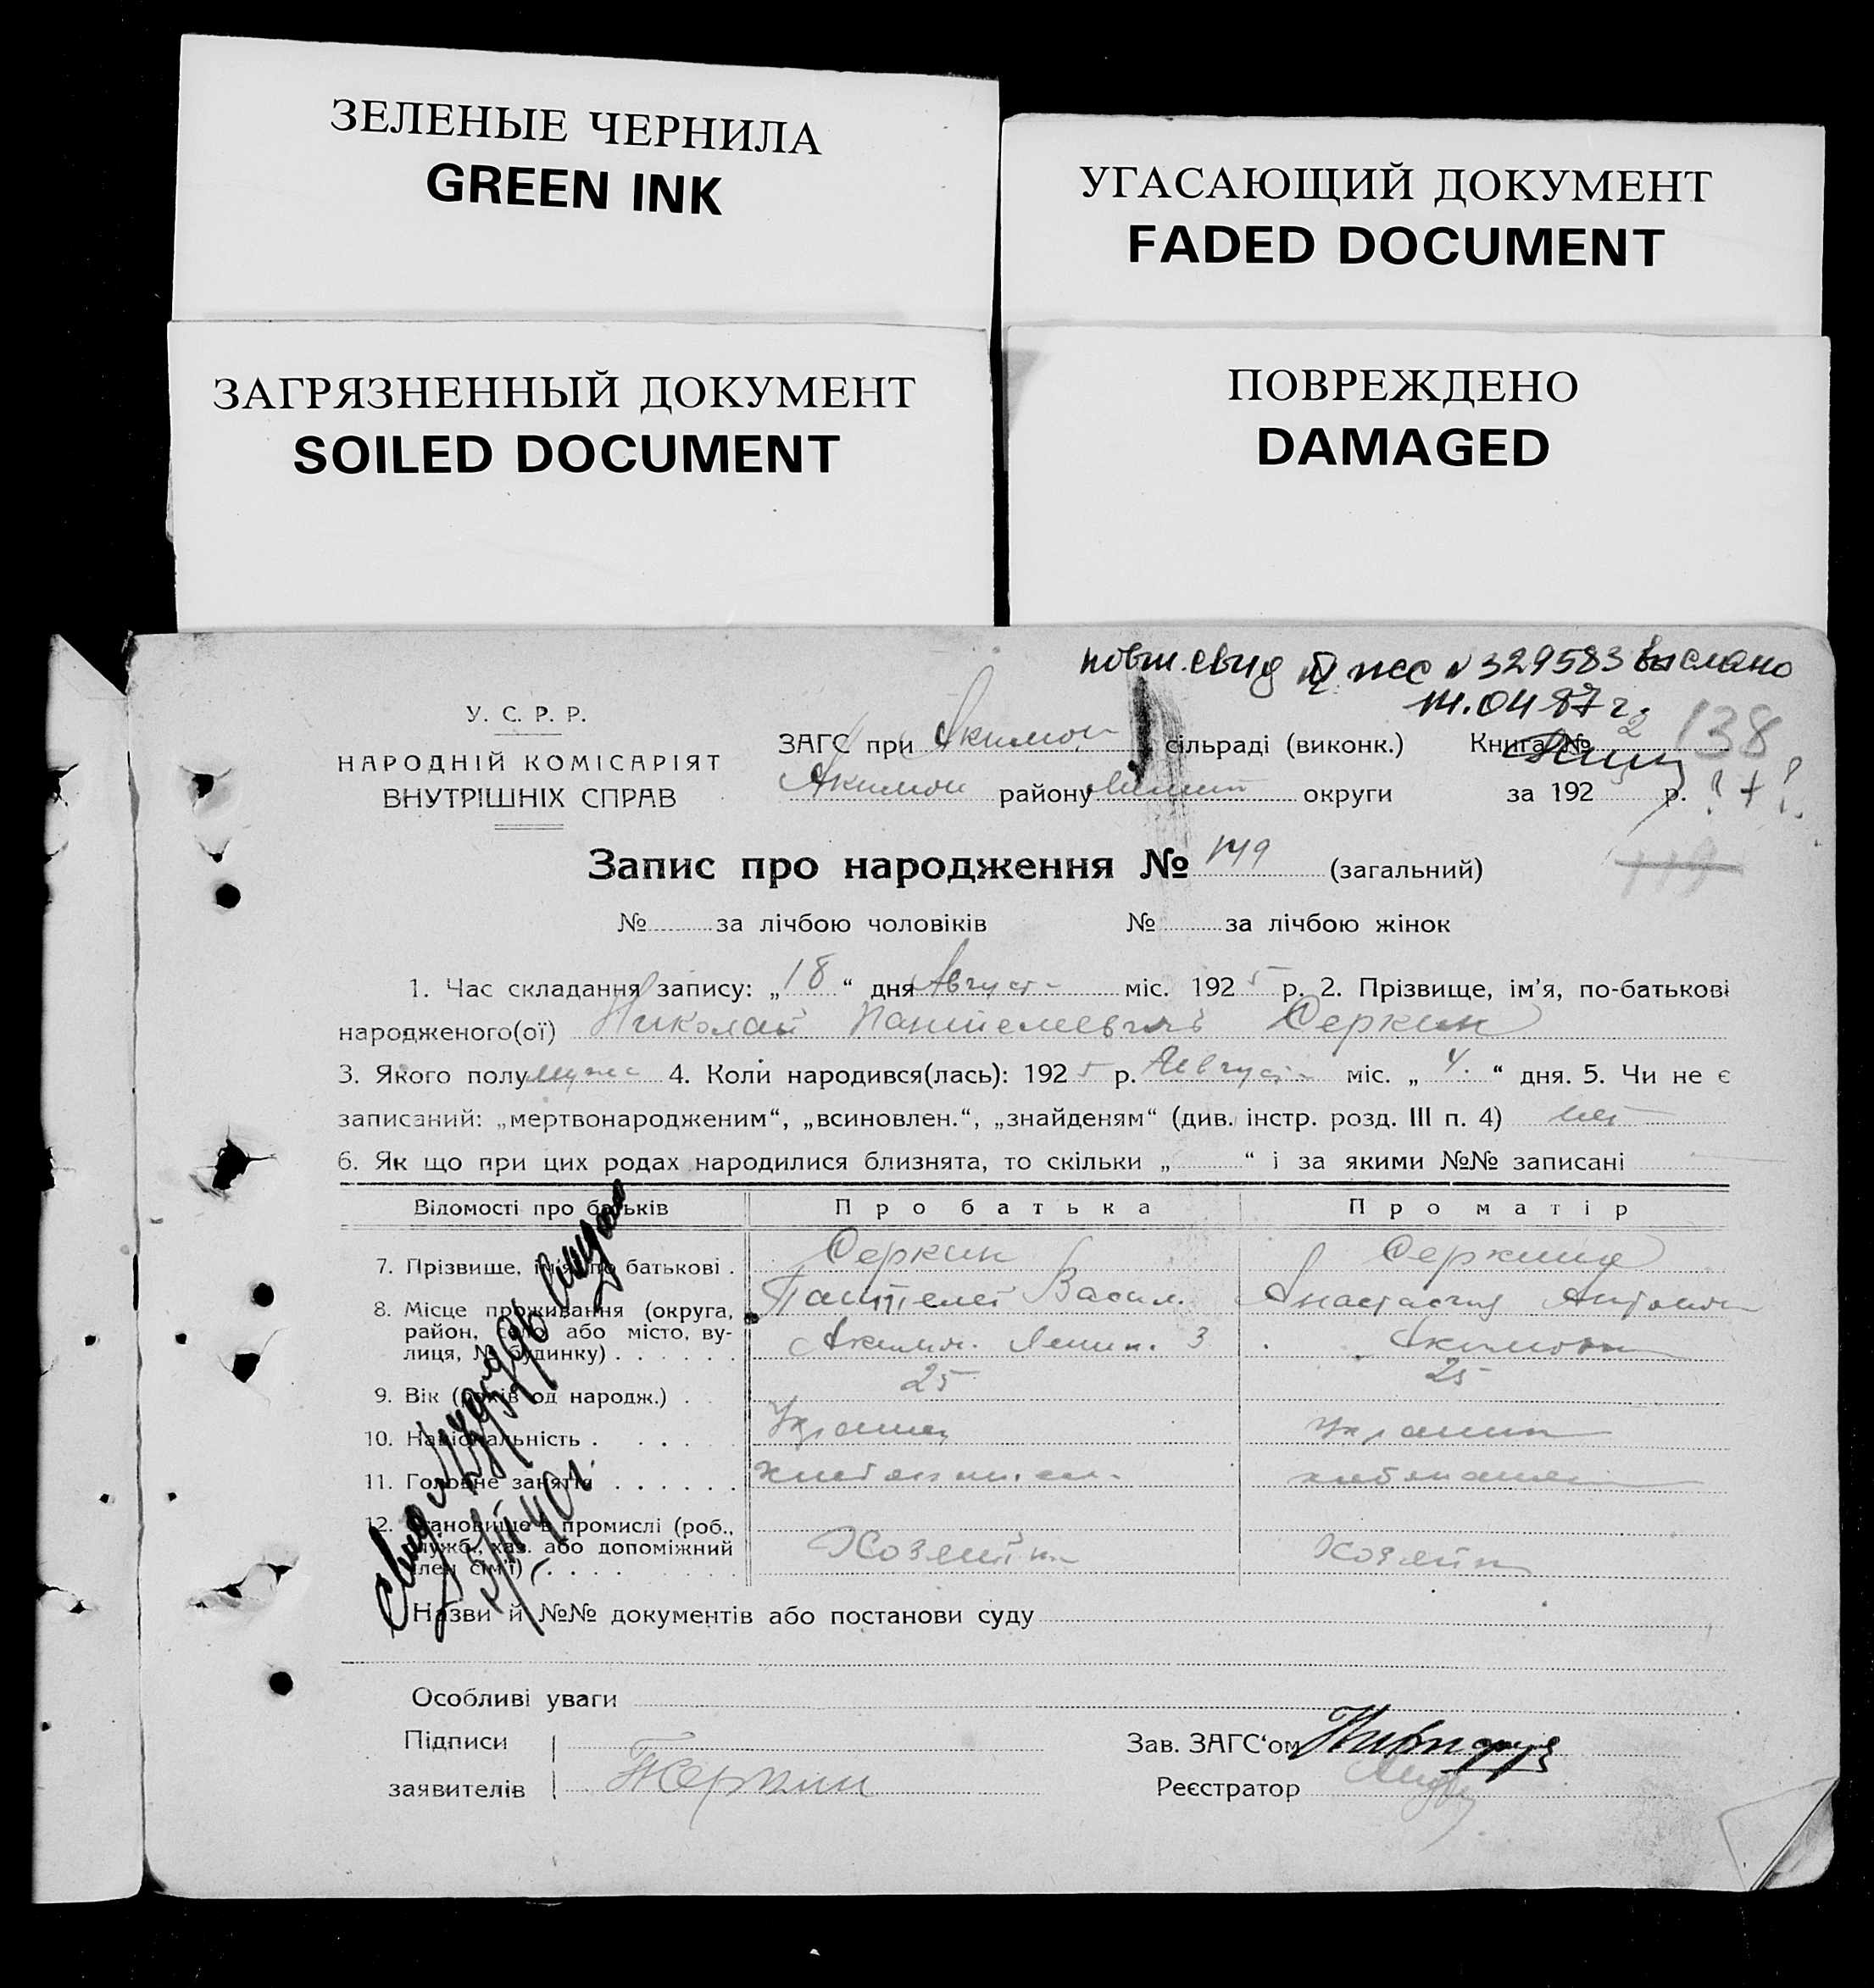 ЗЕЛЕНЫЕ ЧЕРНИЛА
GREEN INK
УГАСАЮЩИЙ ДОКУМЕНТ
FADED DOCUMENT
ЗАГРЯЗНЕННЫЙ ДОКУМЕНТ
SOILED DOCUMENT
ПОВРЕЖДЕНО
DAMAGED
повт. свид № 329583 выслано
14.04 87 г.
У. С. Р. Р.
НАРОДНІЙ КОМІСАРІЯТ
ВНУТРІШНІХ СПРАВ
ЗАГС при Акимов сільраді (виконк.) Книга № 2 138
Акимов району округи за 192 р. ? + ?
Запис про народження № 149 (загальний)
119
№ за лічбою чоловіків № за лічбою жінок
1. Час складання запису: „18“ дня Август міс. 1925 р. 2. Прізвище, ім’я, по-батькові
народженого(ої) Николай Пантелеевичъ Серкин
3. Якого полу муж 4. Коли народився(лась): 1925 р. Август міс. „4.“ дня. 5. Чи не є
записаний: „мертвонародженим“, „всиновлен.“, „знайденям“ (див. інстр. розд. III п. 4) нет
6. Як що при цих родах народилися близнята, то скільки „ “ і за якими №№ записані
Відомості про батьків Про батька Про матір
7. Прізвище, ім’я, по батькові . Серкин Серкина
Пантелей Васил. Анастасия Антонов
8. Місце проживання (округа,
район, село або місто, ву-
лиця, № будинку) . . . . . . Аким. Ленин. 3 Акимовк
9. Вік (років од народж.) . 25 25
10. Національність . . . . Украинец Украин
11. Головне заняття . . . . . . хлебопаш
12. Становище в промислі (роб.,
служб., хаз. або допоміжний
член сім’ї) . . . . . Хозяин Хозяйк
Назви й №№ документів або постанови суду
Особливі уваги
Підписи
заявителів Серкин
Зав. ЗАГС‘ом
Реєстратор